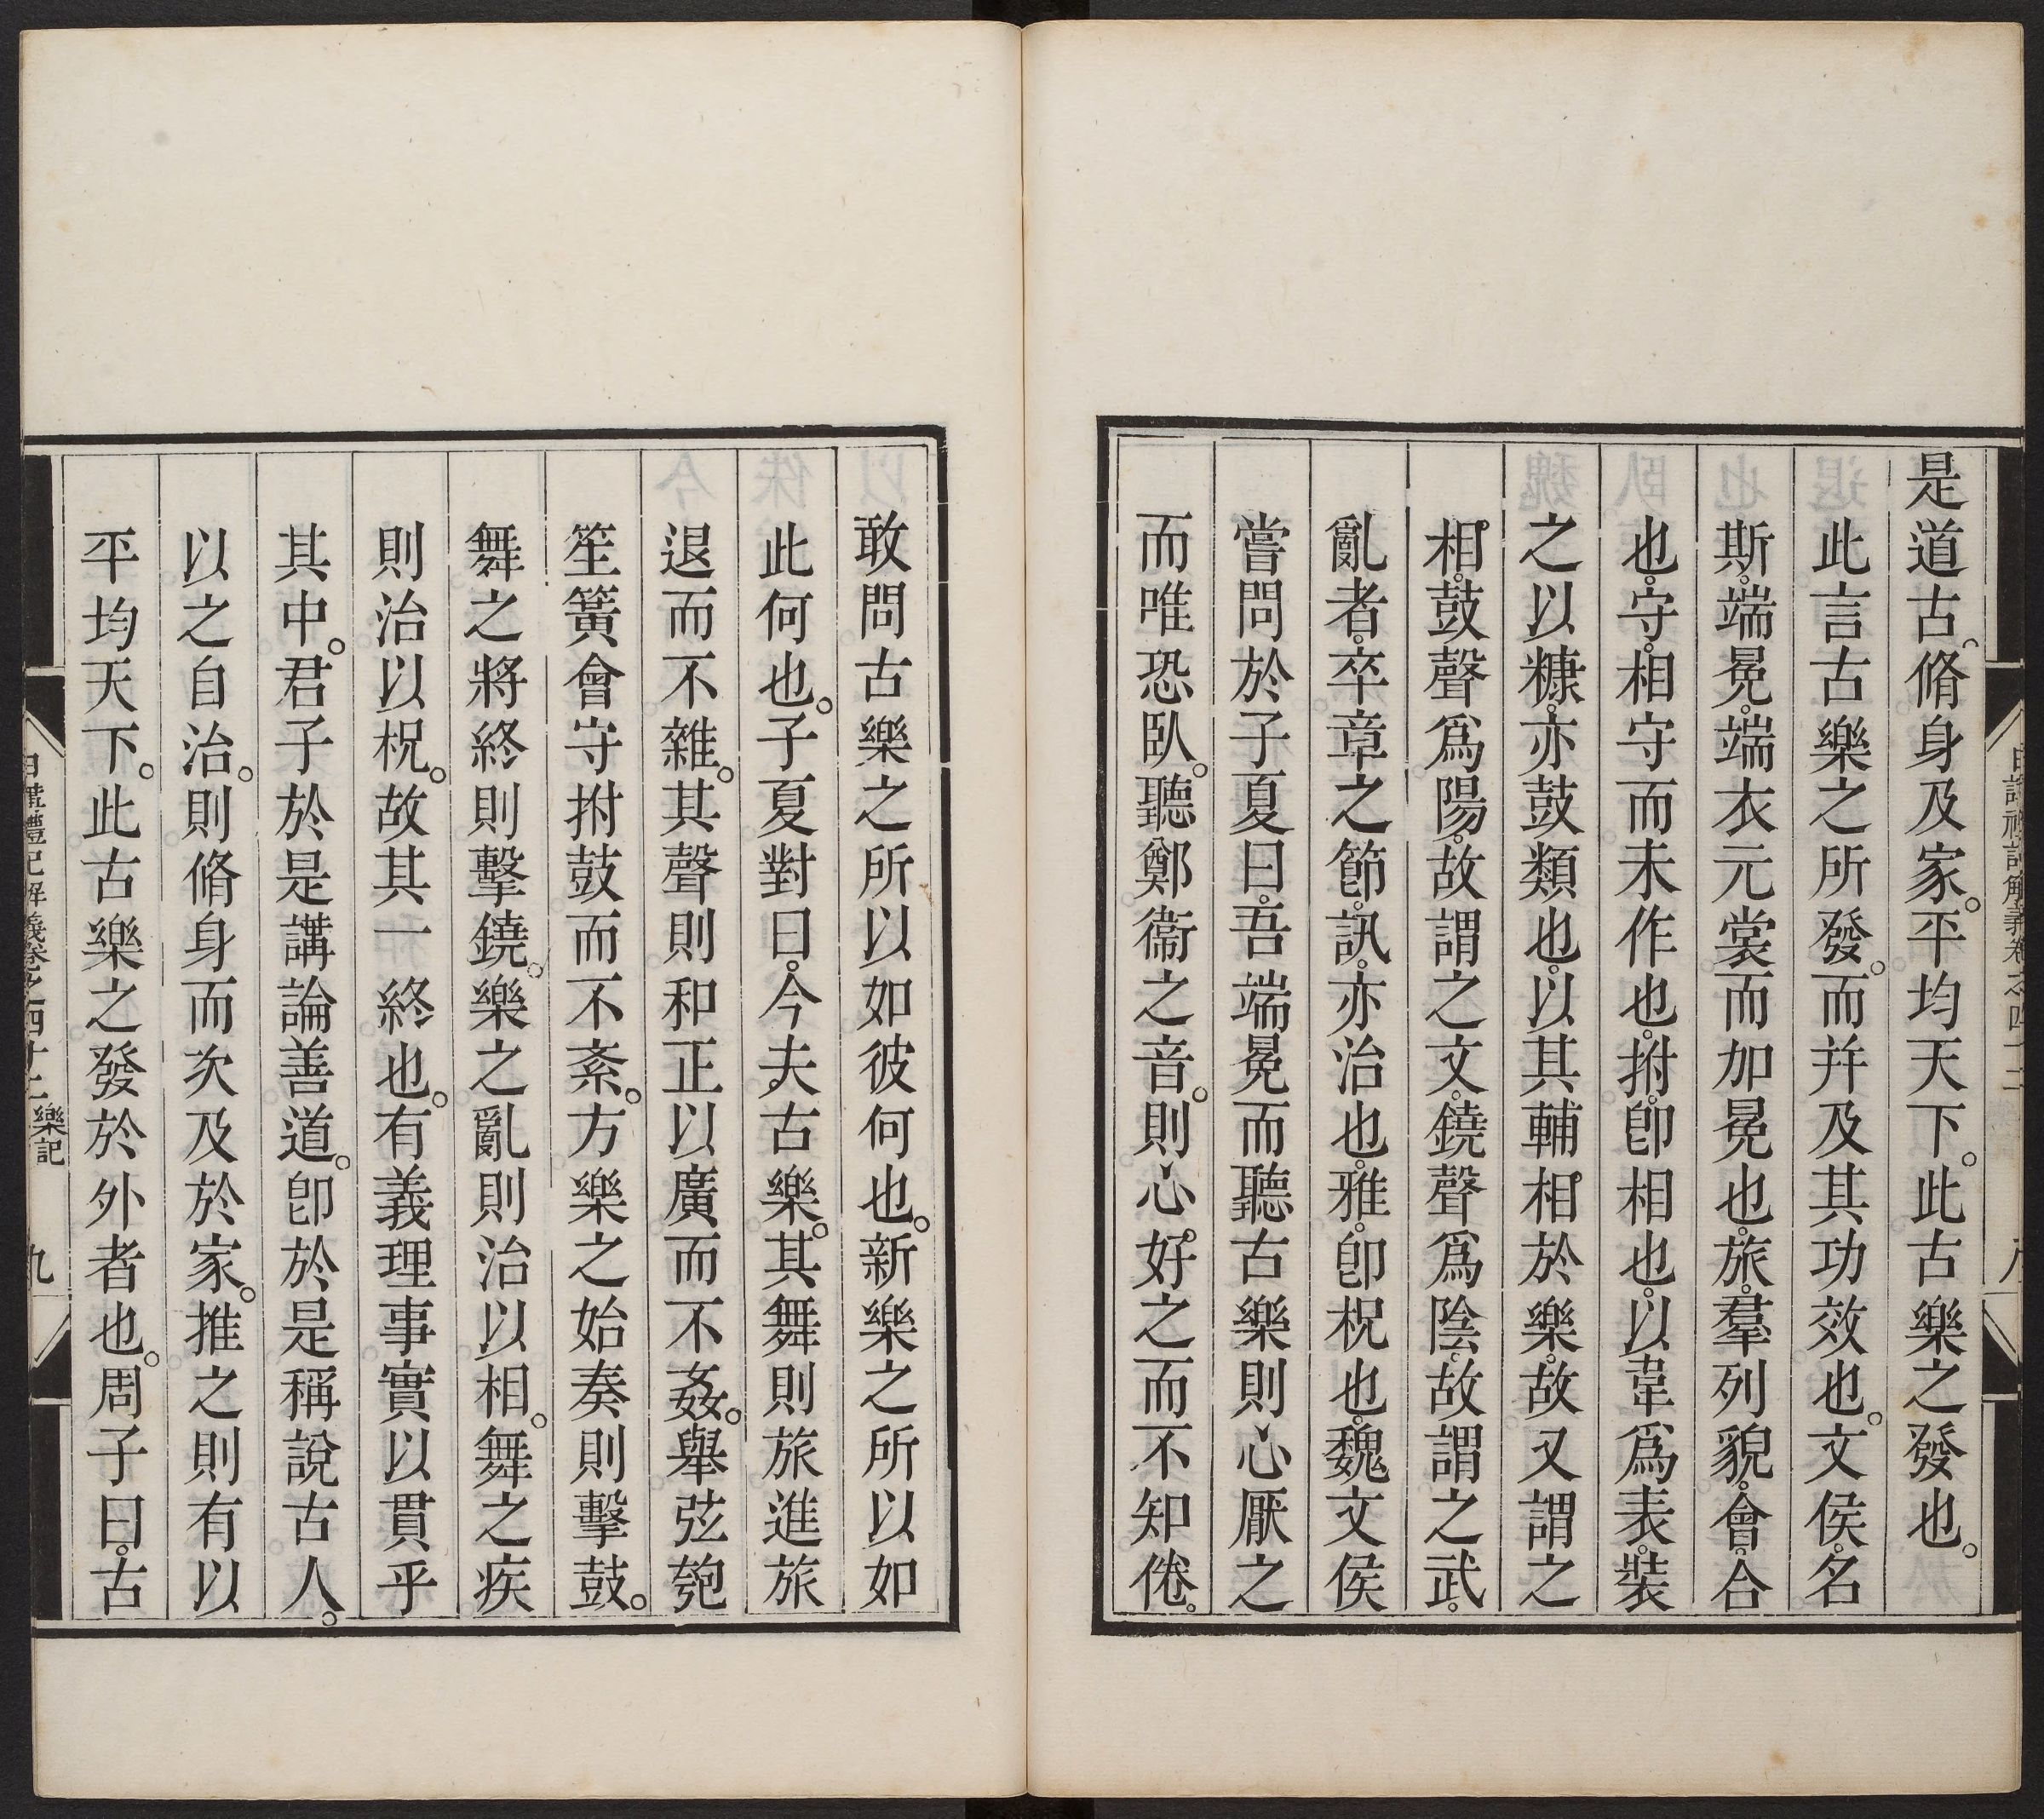 是道古。脩身及家。平均天下。此古樂之發也。
此言古樂之所發。而并及其功效也。文侯。名
斯。端冕。端衣元裳而加冕也。旅。羣列貌。會。合
也。守。相守而未作也。拊。卽相也。以韋爲表。裝
之以糠。亦鼓類也。以其輔相於樂。故又謂之
相。鼓聲爲陽。故謂之文。鐃聲爲陰。故謂之武。
亂者。卒章之節。訊。亦治也。雅。卽柷也。魏文侯
嘗問於子夏曰。吾端冕而聽古樂則心厭之
而唯恐臥。聽鄭衞之音。則心好之而不知倦。
敢問古樂之所以如彼何也。新樂之所以如
此何也。子夏對曰。今夫古樂。其舞則旅進旅
退而不雜。其聲則和正以廣而不姦。舉弦匏
笙簧會守拊鼓而不紊。方樂之始奏則擊鼓。
舞之將終則擊鐃。樂之亂則治以相。舞之疾
則治以柷。故其一終也。有義理事實以貫乎
其中。君子於是講論善道。卽於是稱說古人。
以之自治。則脩身而次及於家。推之則有以
平均天下。此古樂之發於外者也。周子曰。古
日講禮記解義卷之四十二 樂記 九